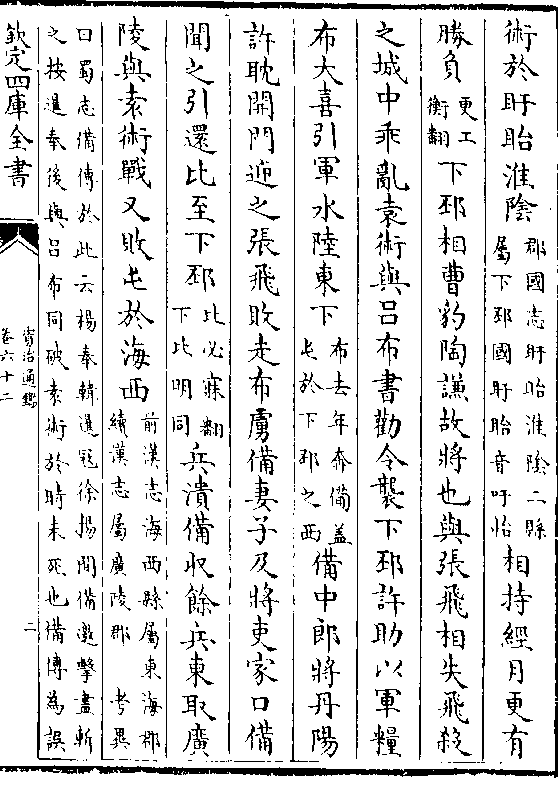 術於盱眙淮隂郡國志盱眙淮隂二縣屬下邳國盱眙音吁怡相持經月更有
勝負更工衡翻下邳相曹豹陶謙故將也與張飛相失飛殺
之城中乖亂袁術與吕布書勸令襲下邳許助以軍糧
布大喜引軍水陸東下布去年奔備盖屯於下邳之西備中郎將丹陽
許耽開門迎之張飛敗走布虜備妻子及將吏家口備
聞之引還比至下邳比必寐翻下比明同兵潰備收餘兵東取廣
陵與袁術戰又敗屯於海西前漢志海西縣屬東海郡續漢志屬廣陵郡 考異
曰蜀志備傳於此云楊奉韓暹寇徐揚間備邀擊盡斬
之按暹奉後與吕布同破袁術於時未死也備傳為誤
欽定四庫全書
資治通鑑
卷六十二
二